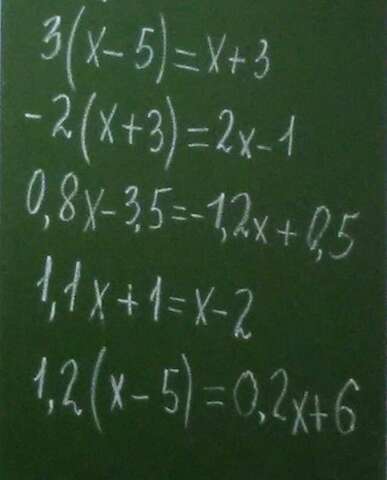 3(x-5)=x+3
-2(x+3)=2x-1
0,8x-3,5=-1,2x+0,5
1,1x+1=x-2
1,2(x-5)=0,2x+6